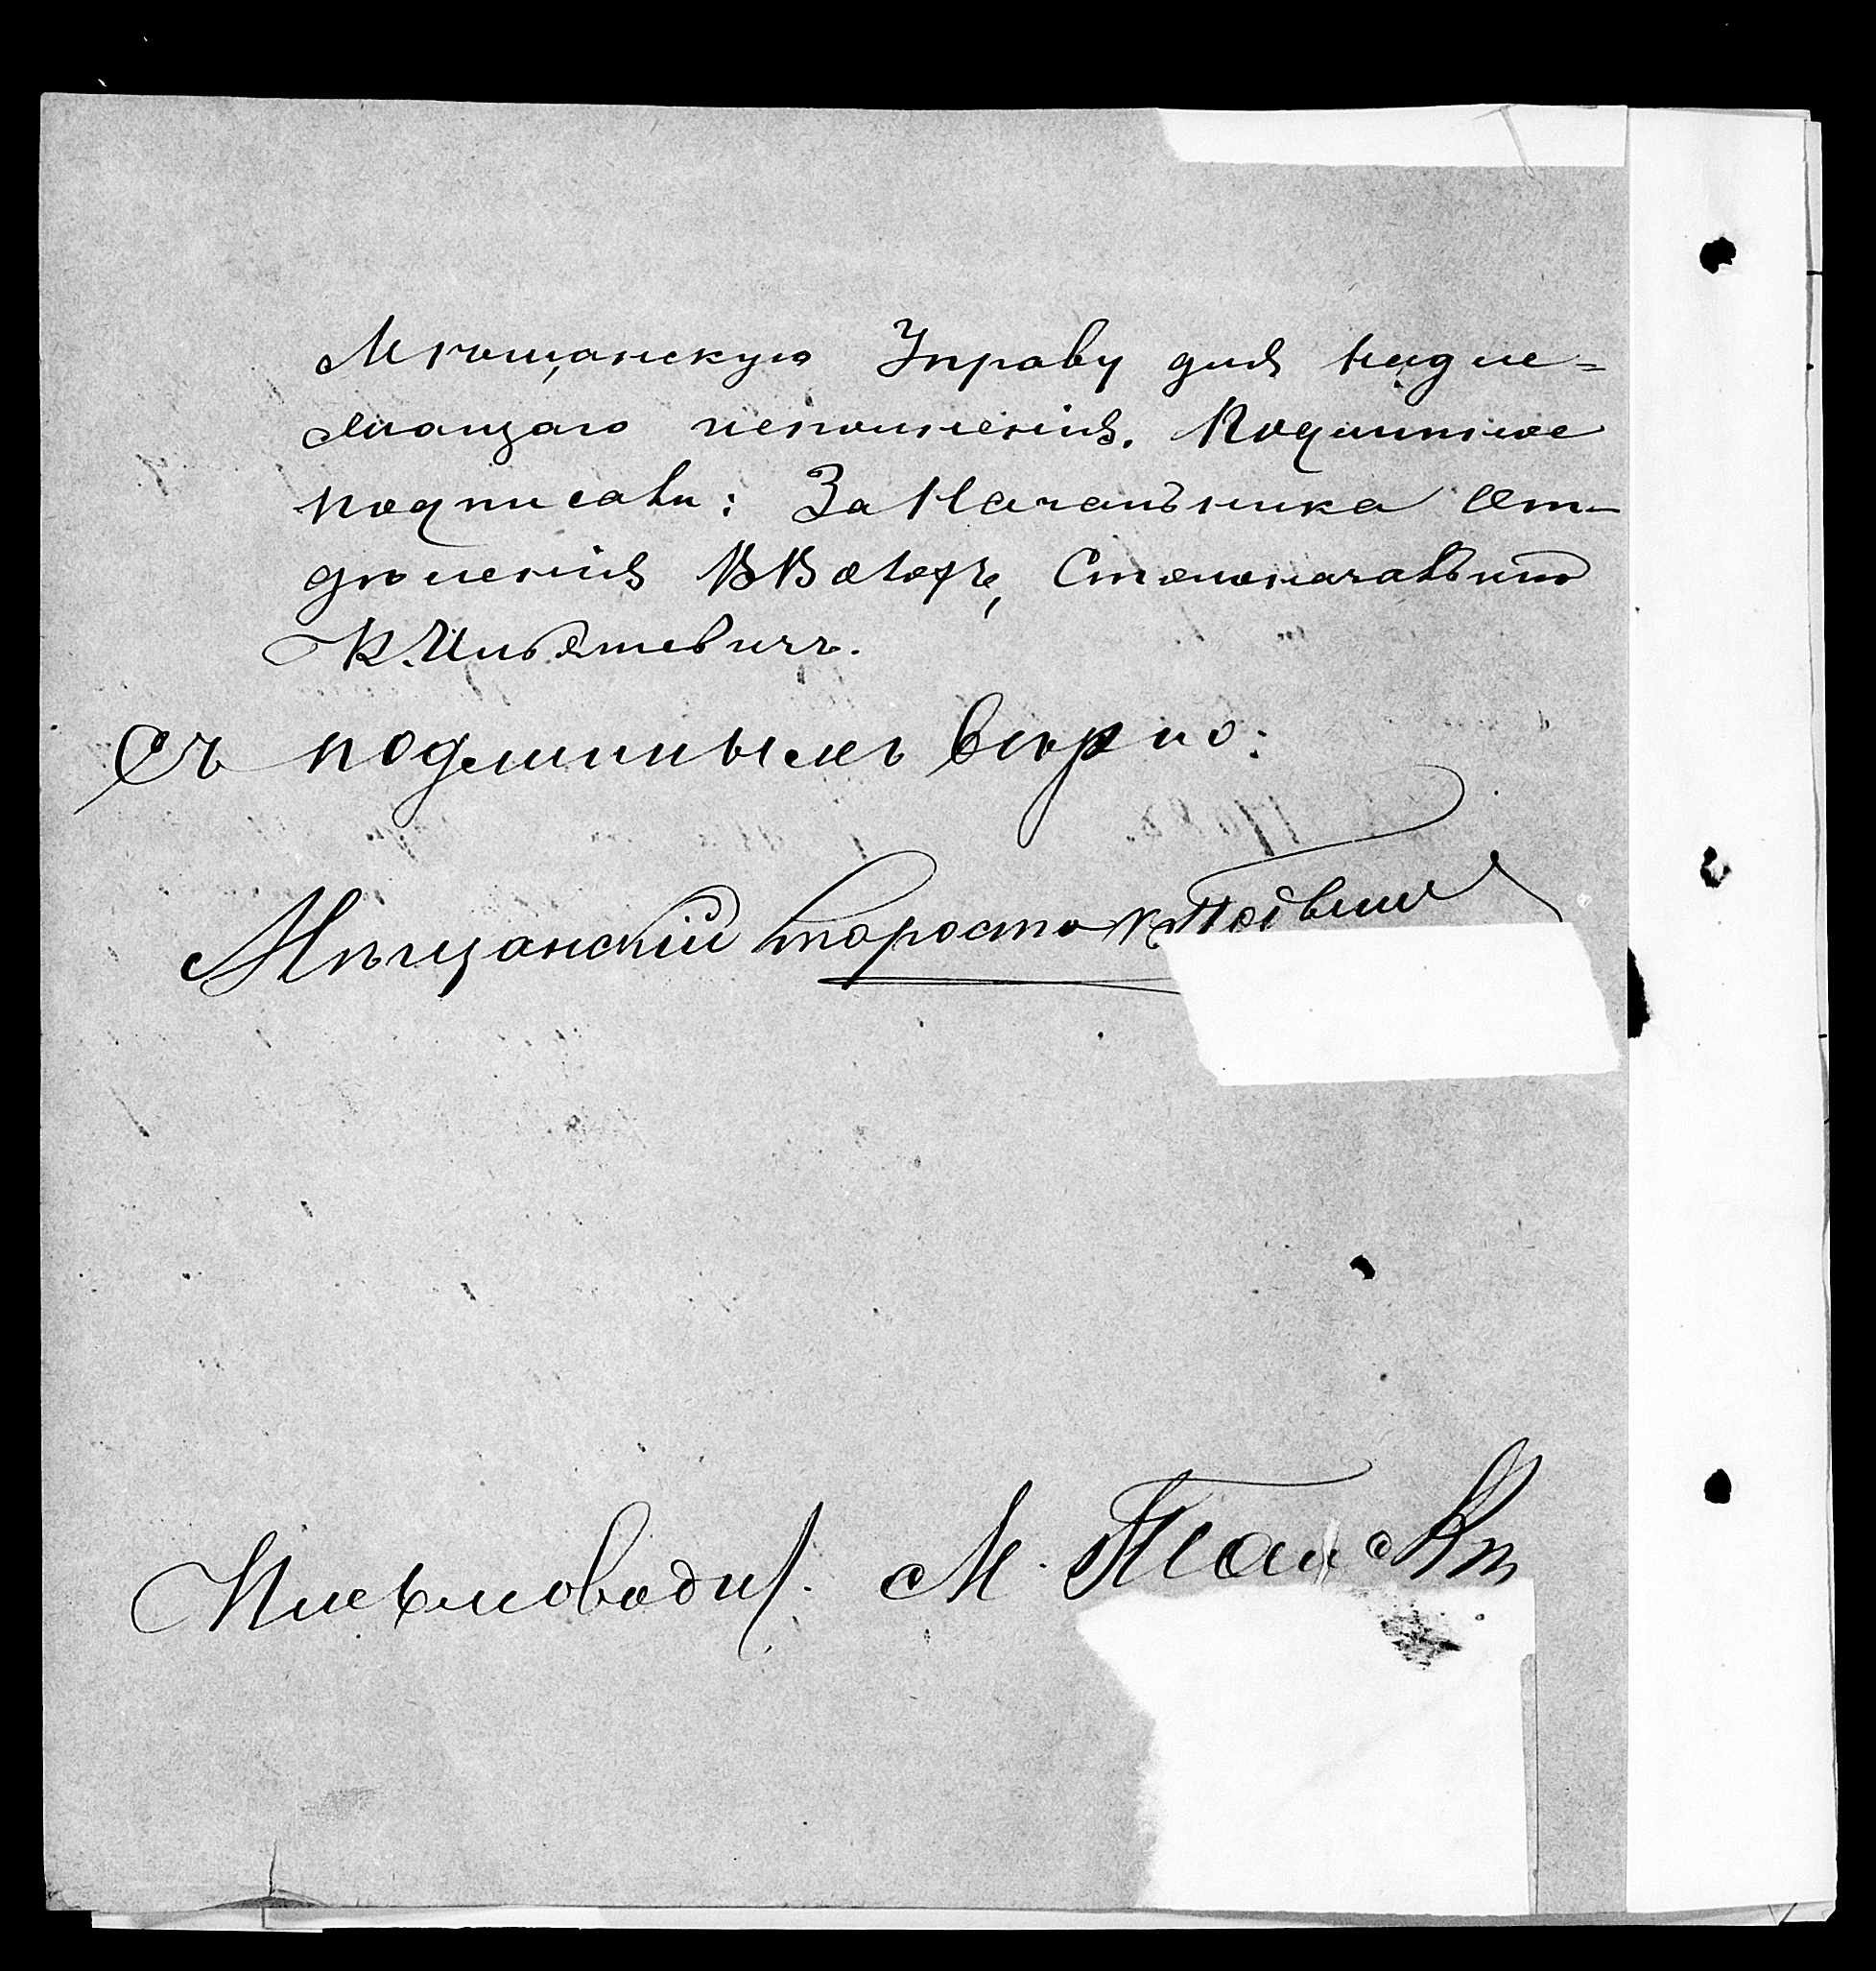 Мѣщанскую Управу для надле=
жащаго исполненія. Подлинное
подписали: За Начальника От-
дѣленія Столоначальникъ
К.
Съ подлиннымъ вѣрно:
Мѣщанскій Староста
Письмоводит. М.